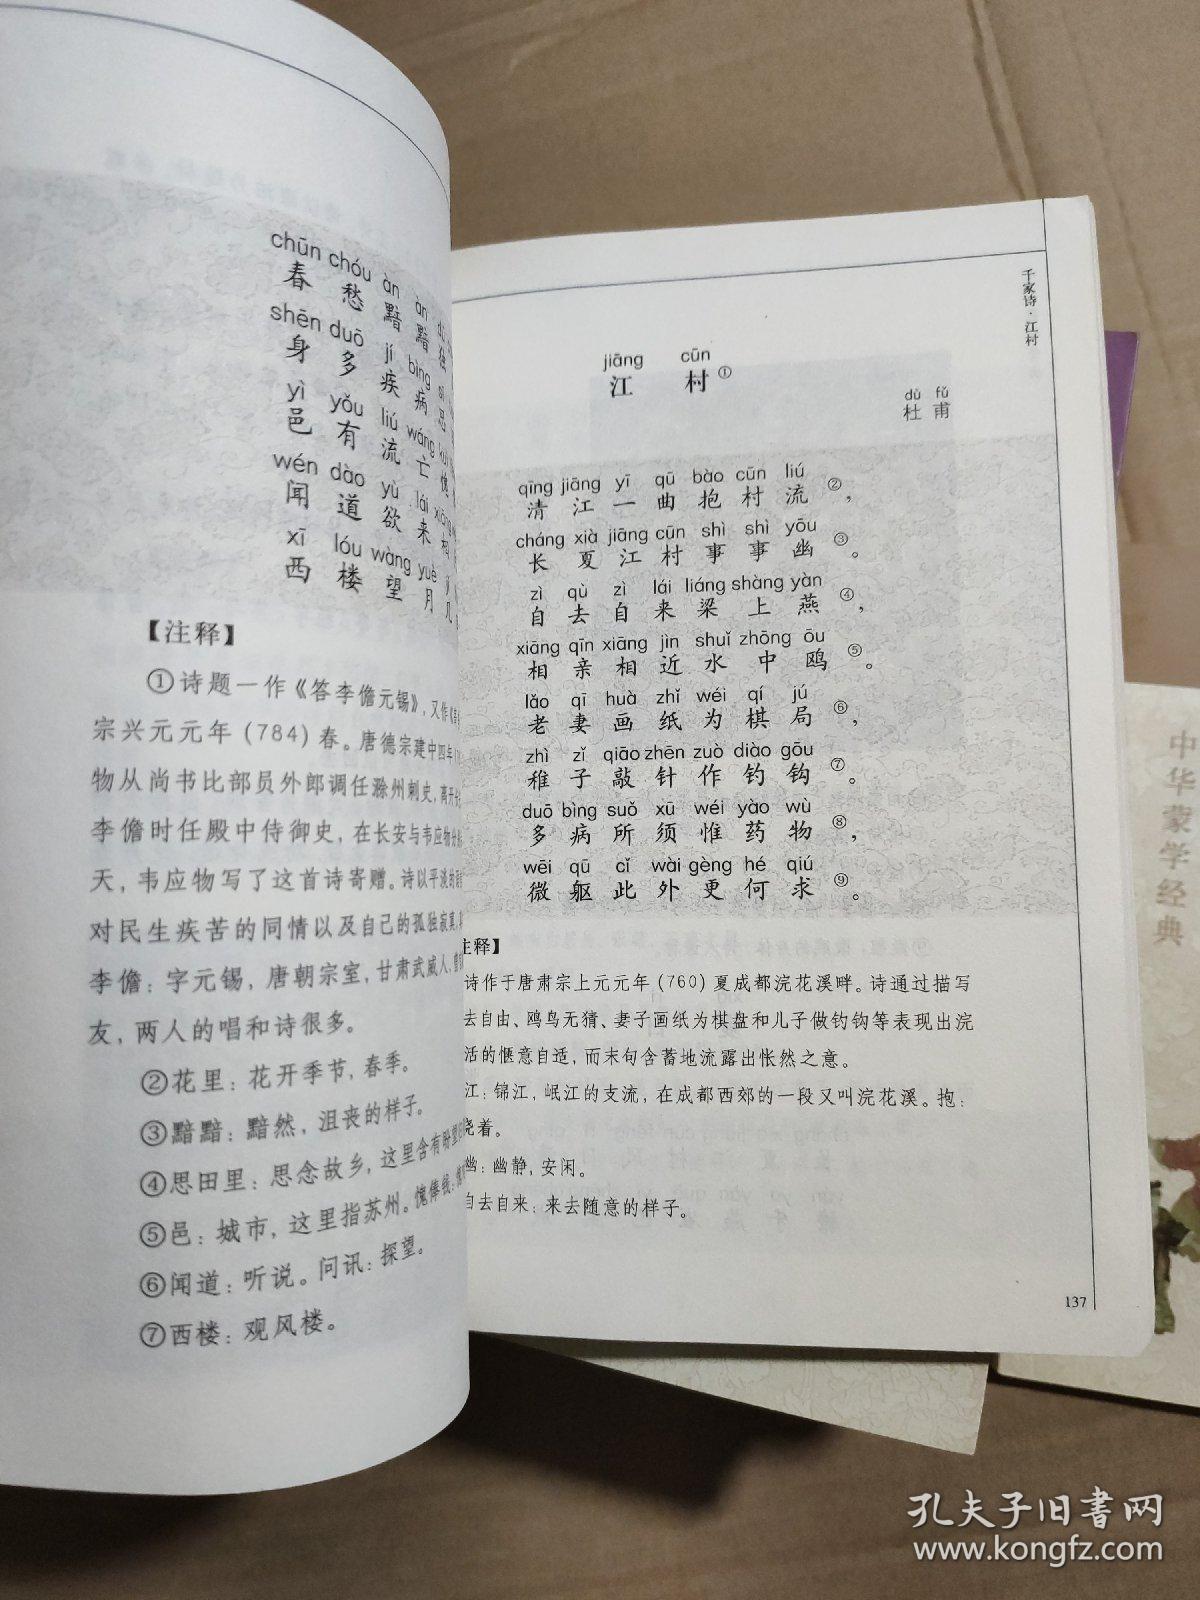 chūn chóu àn àn
春愁黯黯
shēn duō jí bìng
身多疾病思
yì yǒu liú wáng
邑有流亡愧
wén dào yù lái
闻道欲来相
xī lóu wàng yuè
西楼望月几
【注释】
①诗题一作《答李儋元锡》，又作
宗兴元元年（784）春。唐德宗建中四年
物从尚书比部员外郎调任滁州刺史，离开长
李儋时任殿中侍御史，在长安与韦应物分
天，韦应物写了这首诗寄赠。诗以平淡的语
对民生疾苦的同情以及自己的孤独寂寞，
李儋：字元锡，唐朝宗室，甘肃武威人，曾
友，两人的唱和诗很多。
②花里：花开季节，春季。
③黯黯：黯然，沮丧的样子。
④思田里：思念故乡，这里含有盼望
⑤邑：城市，这里指苏州。愧俸钱：
⑥闻道：听说。问讯：探望。
⑦西楼：观风楼。
千家诗·江村
jiāng cūn
江村①
dù fǔ
杜甫
qīng jiāng yī qū bào cūn liú
清江一曲抱村流②，
cháng xià jiāng cūn shì shì yōu
长夏江村事事幽③。
zì qù zì lái liáng shàng yàn
自去自来梁上燕④，
xiāng qīn xiāng jìn shuǐ zhōng ōu
相亲相近水中鸥⑤。
lǎo qī huà zhǐ wéi qí jú
老妻画纸为棋局⑥，
zhì zǐ qiāo zhēn zuò diào gōu
稚子敲针作钓钩⑦。
duō bìng suǒ xū wéi yào wù
多病所须惟药物⑧，
wēi qū cǐ wài gèng hé qiú
微躯此外更何求⑨。
注释】
诗作于唐肃宗上元元年（760）夏成都浣花溪畔。诗通过描写
去自由、鸥鸟无猜、妻子画纸为棋盘和儿子做钓钩等表现出浣
活的惬意自适，而末句含蓄地流露出怅然之意。
江：锦江，岷江的支流，在成都西郊的一段又叫浣花溪。抱：
绕着。
幽：幽静，安闲。
自去自来：来去随意的样子。
137
中华蒙学经典
孔夫子旧书网
www.kongfz.com